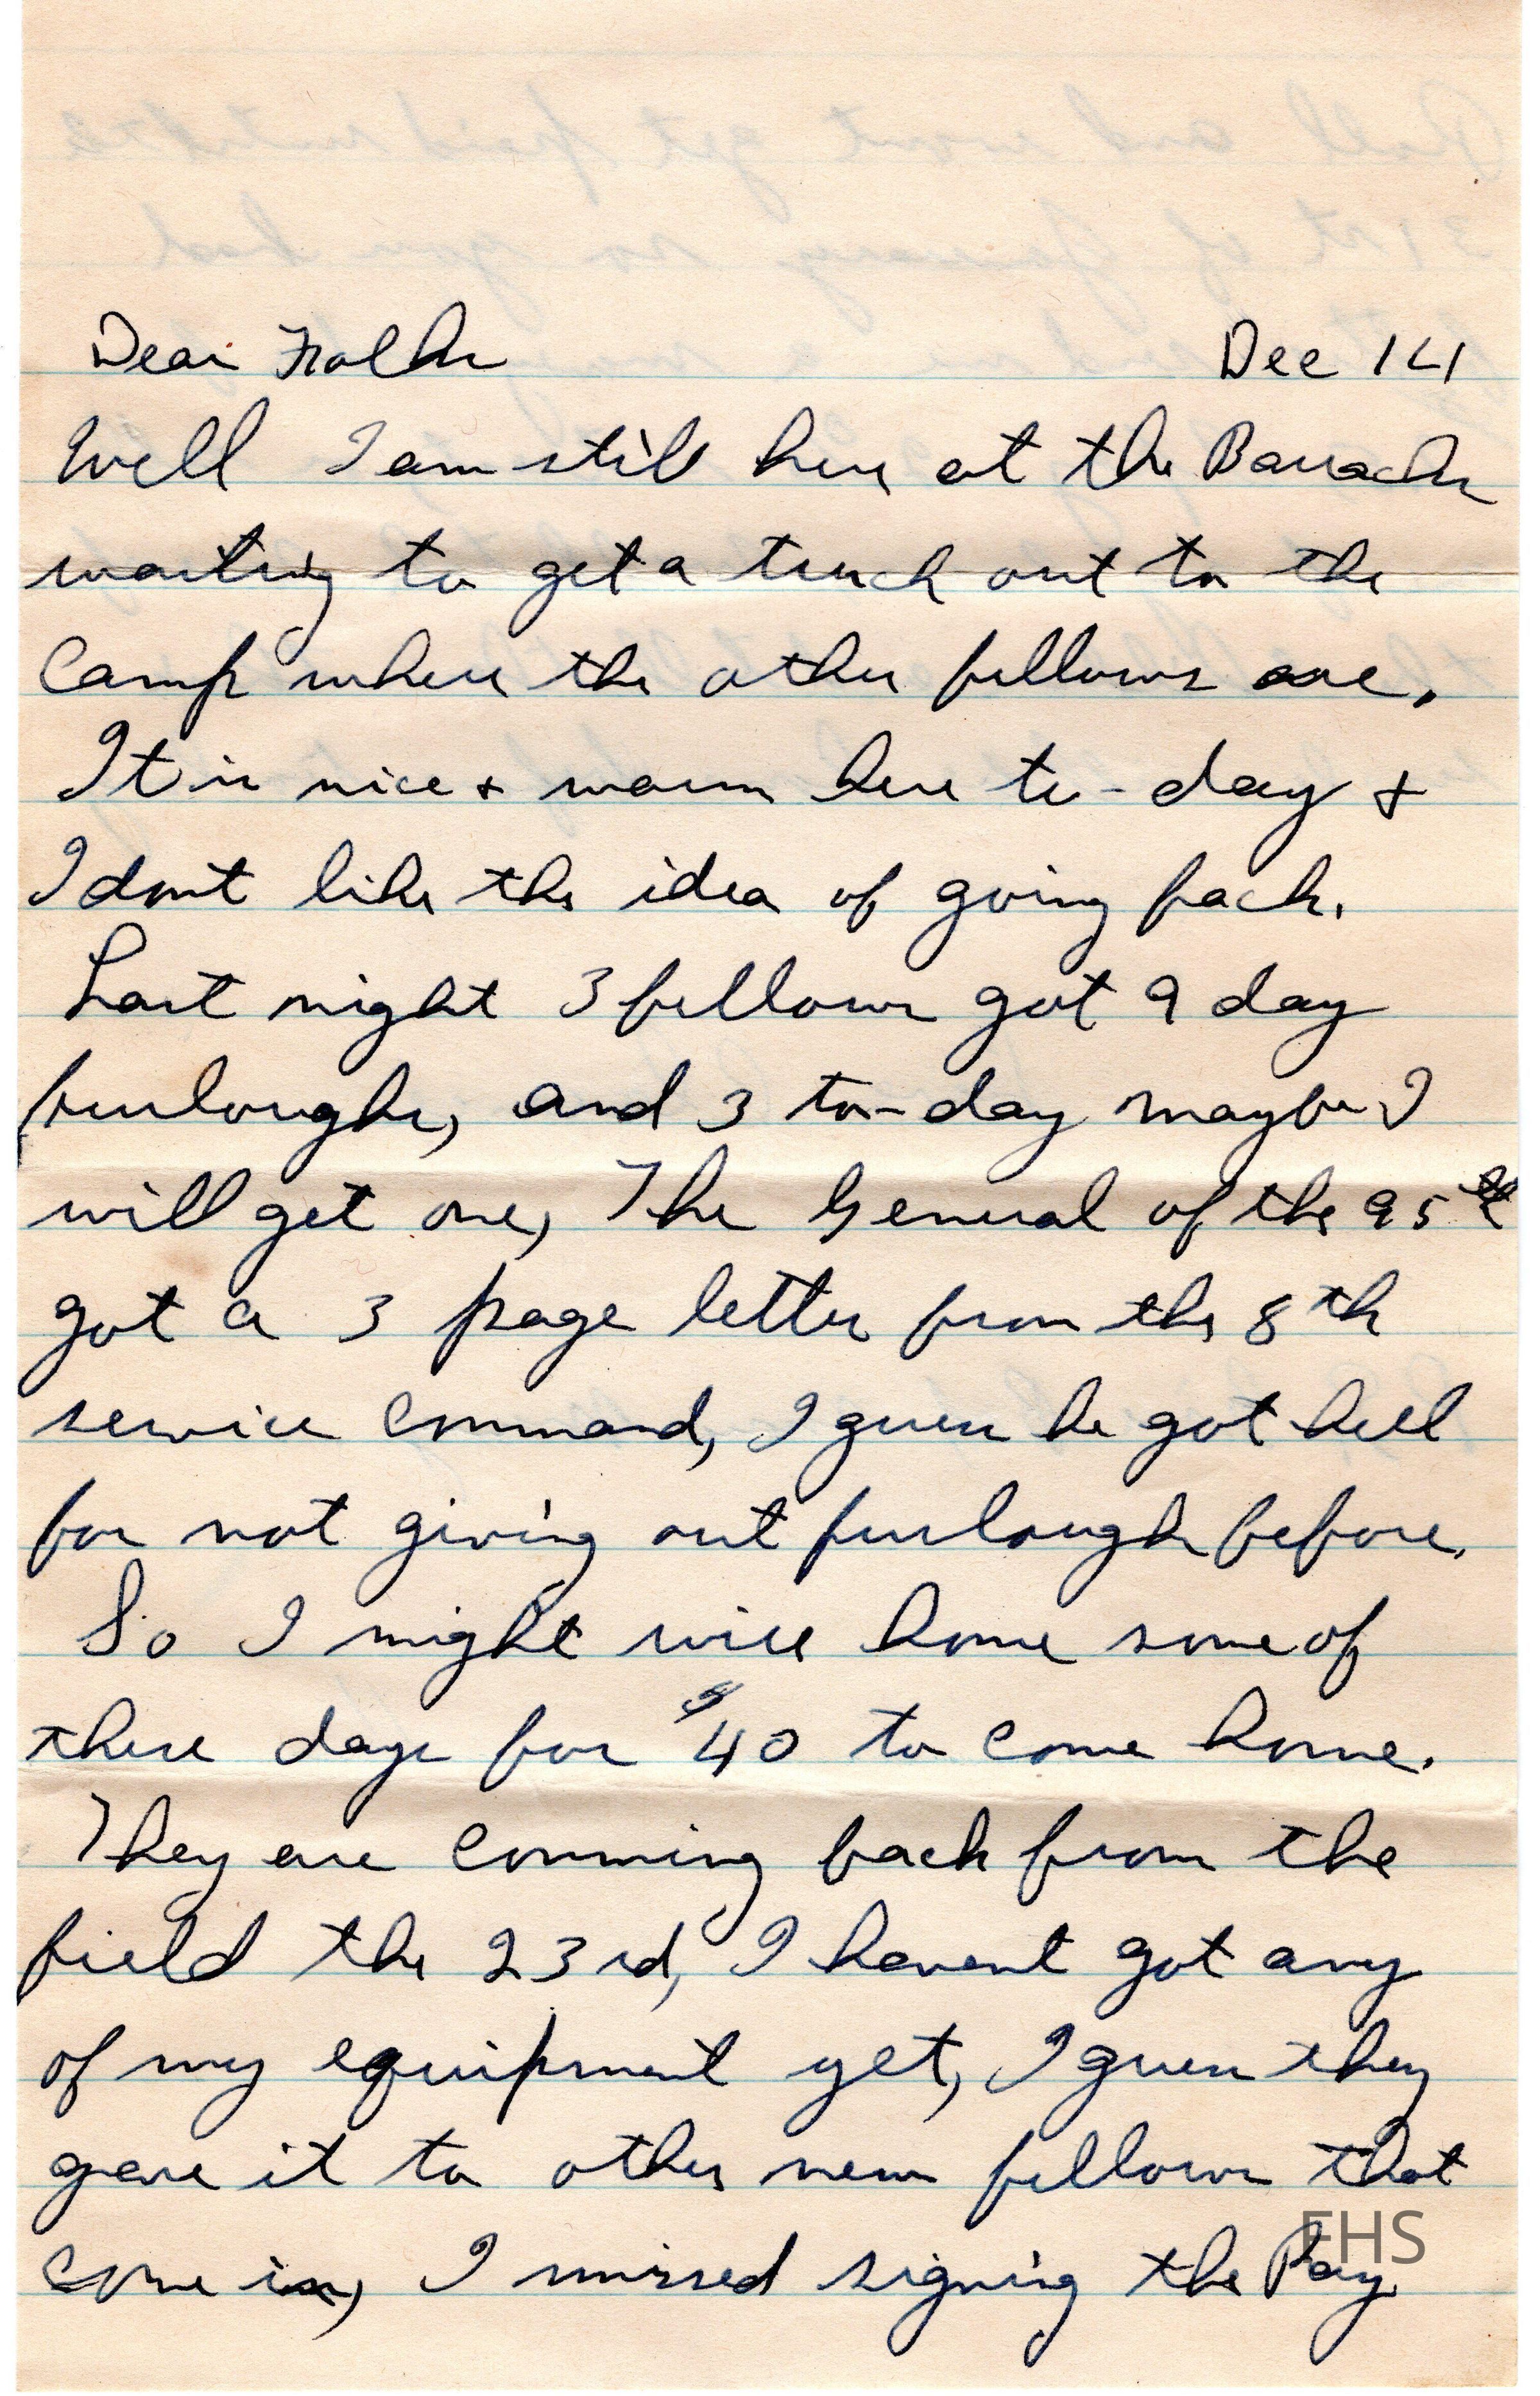 Dear Folks Dec 14
Well I am still here at the Barracks
waiting to get a truck out to the
Camp where the other fellows are.
It is nice & warm here to-day &
I dont like the idea of going back.
Last night 3 fellows got 9 day
furloughs, and 3 to-day maybe I
will get one, The General of the 95th
got a 3 page letter from the 8th
service Command, I guess he got hell
for not giving out furloughs before.
So I might wire home some of
these days for $40 to come home.
They are comming back from the
field the 23rd, I havent got any
of my equipment yet, I guess they
gave it to other new fellows that
come in, I missed signing the Pay
EHS